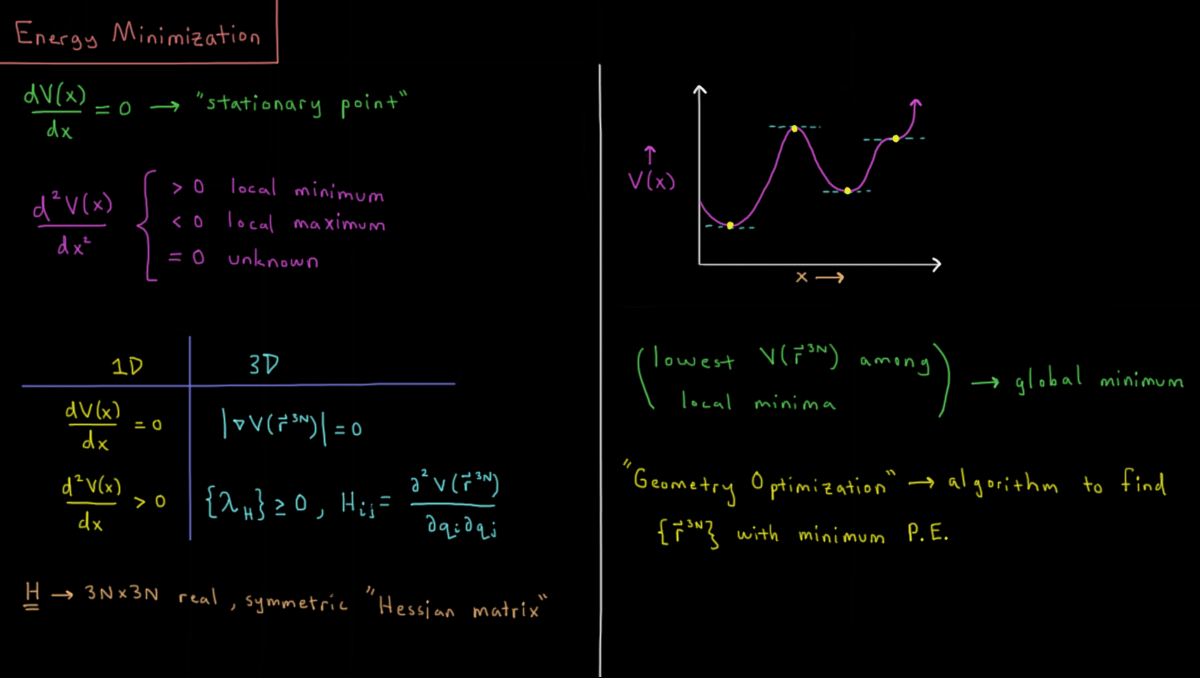 Energy Minimization
dV(x)/dx = 0 → "stationary point"
d²V(x)/dx² { > 0 local minimum
< 0 local maximum
= 0 unknown
1D | 3D
dV(x)/dx = 0 | |∇V(r⃗³ᴺ)| = 0
d²V(x)/dx > 0 | {λ_H} ≥ 0, H_ij = ∂²V(r⃗³ᴺ)/∂q_i∂q_j
H → 3N×3N real, symmetric "Hessian matrix"
↑
V(x)
x →
(lowest V(r⃗³ᴺ) among
local minima) → global minimum
"Geometry Optimization" → algorithm to find
{r⃗³ᴺ} with minimum P.E.